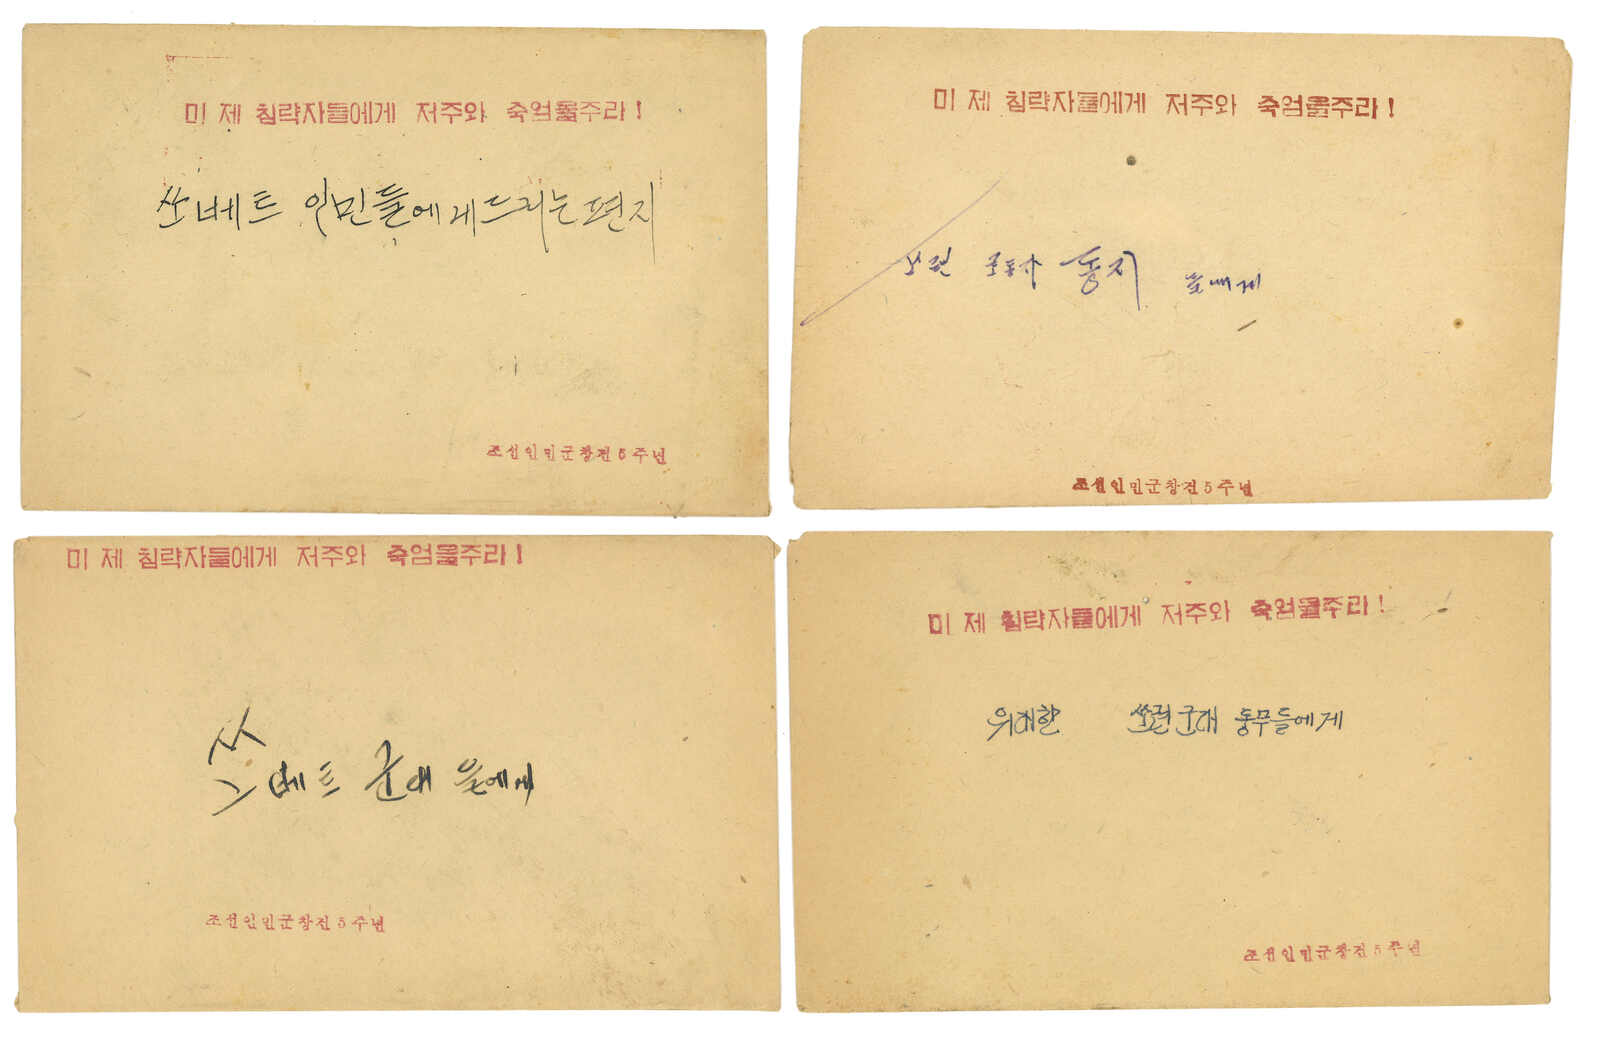 미 제 침략자들에게 저주와 죽엄을주라!
쏘베트 인민들에게드리는편지
조선인민군창건5주년
미 제 침략자들에게 저주와 죽엄을주라!
쏘련 동지 들에게
조선인민군창건5주년
미 제 침략자들에게 저주와 죽엄을주라!
쏘베트 군대 들에게
조선인민군창건5주년
미 제 침략자들에게 저주와 죽엄을주라!
위대한 쏘련군대 동무들에게
조선인민군창건5주년